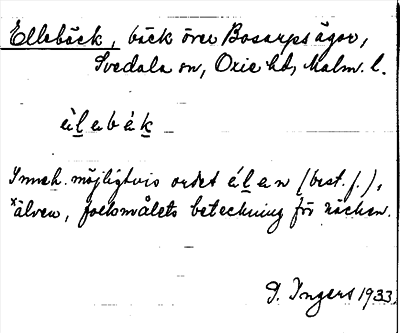 Ellebäck, bäck över Bosarps ägor,
Svedala sn, Oxie hd, Malm. l.
ẹ́lebǽk
Inneh. möjligtvis ordet ẹ́len (best. f.),
×älven, folkmålets beteckning för näcken.
I. Ingers 1933.